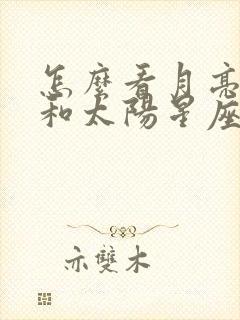 怎麼看月亮
和太陽星座
亦雙木